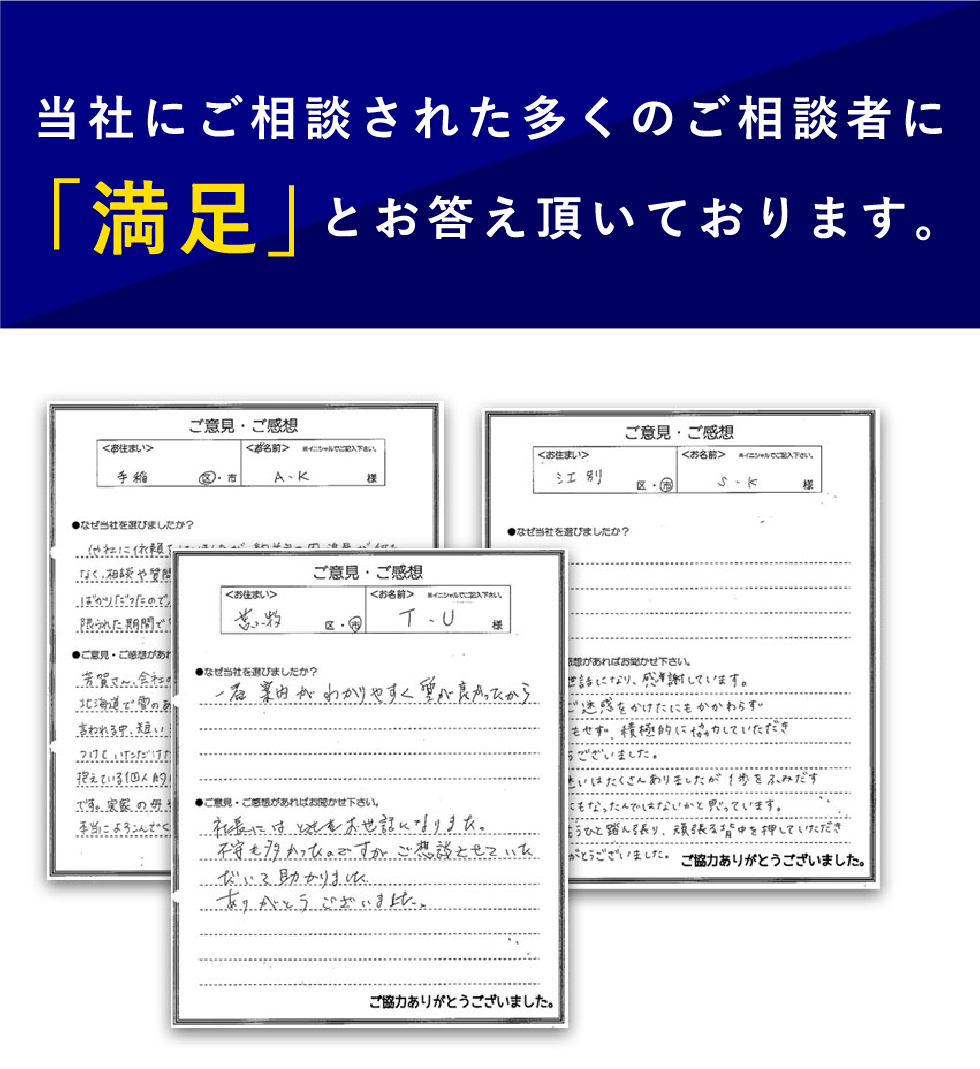 当社にご相談された多くのご相談者に
「満足」とお答え頂いております。
ご意見・ご感想
<お住まい>
<お名前> ※イニシャルでご記入下さい。
手稲 区・市 A・K 様
●なぜ当社を選びましたか?
なく、相談や質問
ばかりだったので、
限られた期間で
●ご意見・ご感想があれ
芳賀さん、会社の
北海道で雪のあ
言われる中、短い
つけていただけた
抱えている個人的
です。実家の母や
本当によろこんで
ご意見・ご感想
<お住まい>
<お名前> ※イニシャルでご記入下さい。
区・市 T・U 様
●なぜ当社を選びましたか?
一番 案内が わかりやすく 質が良かったから
●ご意見・ご感想があればお聞かせ下さい。
社長には とてもお世話になりました。
不安も多かったのですが ご相談させていた
だいて助かりました
ありがとう ございました。
ご協力ありがとうございました。
ご意見・ご感想
<お住まい>
<お名前> ※イニシャルでご記入下さい。
江別 区・市 S・K 様
●なぜ当社を選びましたか?
感想があればお聞かせ下さい。
世話になり、感謝しています。
ご迷惑をかけたにもかかわらず
もせず、積極的に協力していただき
うございました。
迷いはたくさんありましたが1歩をふみだす
くもなったんではないかと思っています。
もうひと踏ん張り、頑張る背中を押していただき
がとうございました。
ご協力ありがとうございました。